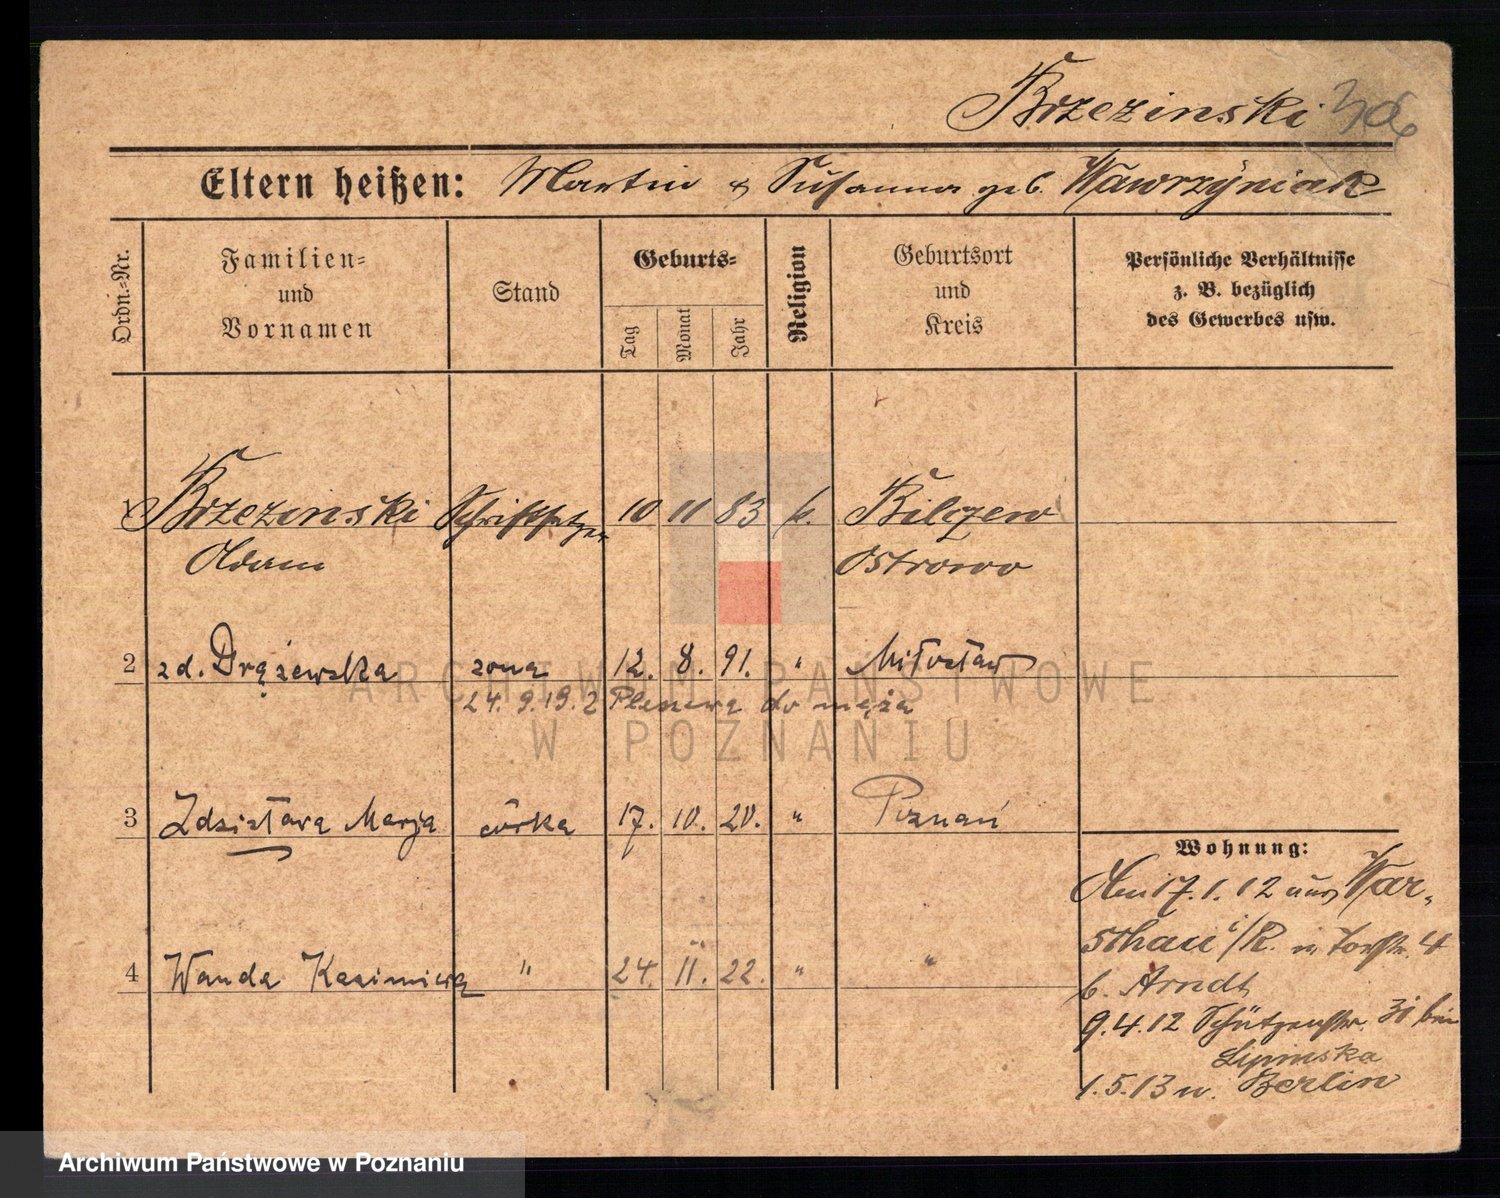 Brzezinski 36
Eltern heißen: Martin & Susanna geb. Wawrzyniak
Ordn.-Nr.
Familien- und Vornamen
Stand
Geburts-
Tag
Monat
Jahr
Religion
Geburtsort und Kreis
Persönliche Verhältnisse
z. B. bezüglich
des Gewerbes usw.
1 Brzezinski Schriftsetzer 10 11 83 k. Bilczew
Adam Ostrowo
2 zd. Drążewska żona 12. 8. 91. " Miłosław
24. 9. 19. 2 Pleszewa do męża
3 Zdzisława Marja córka 17. 10. 20. " Poznań
Wohnung:
Am 17. 1. 12 aus War-
schau i/R. in Torstr. 4
b. Arndt
4 Wanda Kazimiera " 24. 11. 22. " "
9. 4. 12 Schützenstr. 31 bei
Lipinska
1. 5. 13 n. Berlin
ARCHIWUM PAŃSTWOWE
W POZNANIU
Archiwum Państwowe w Poznaniu